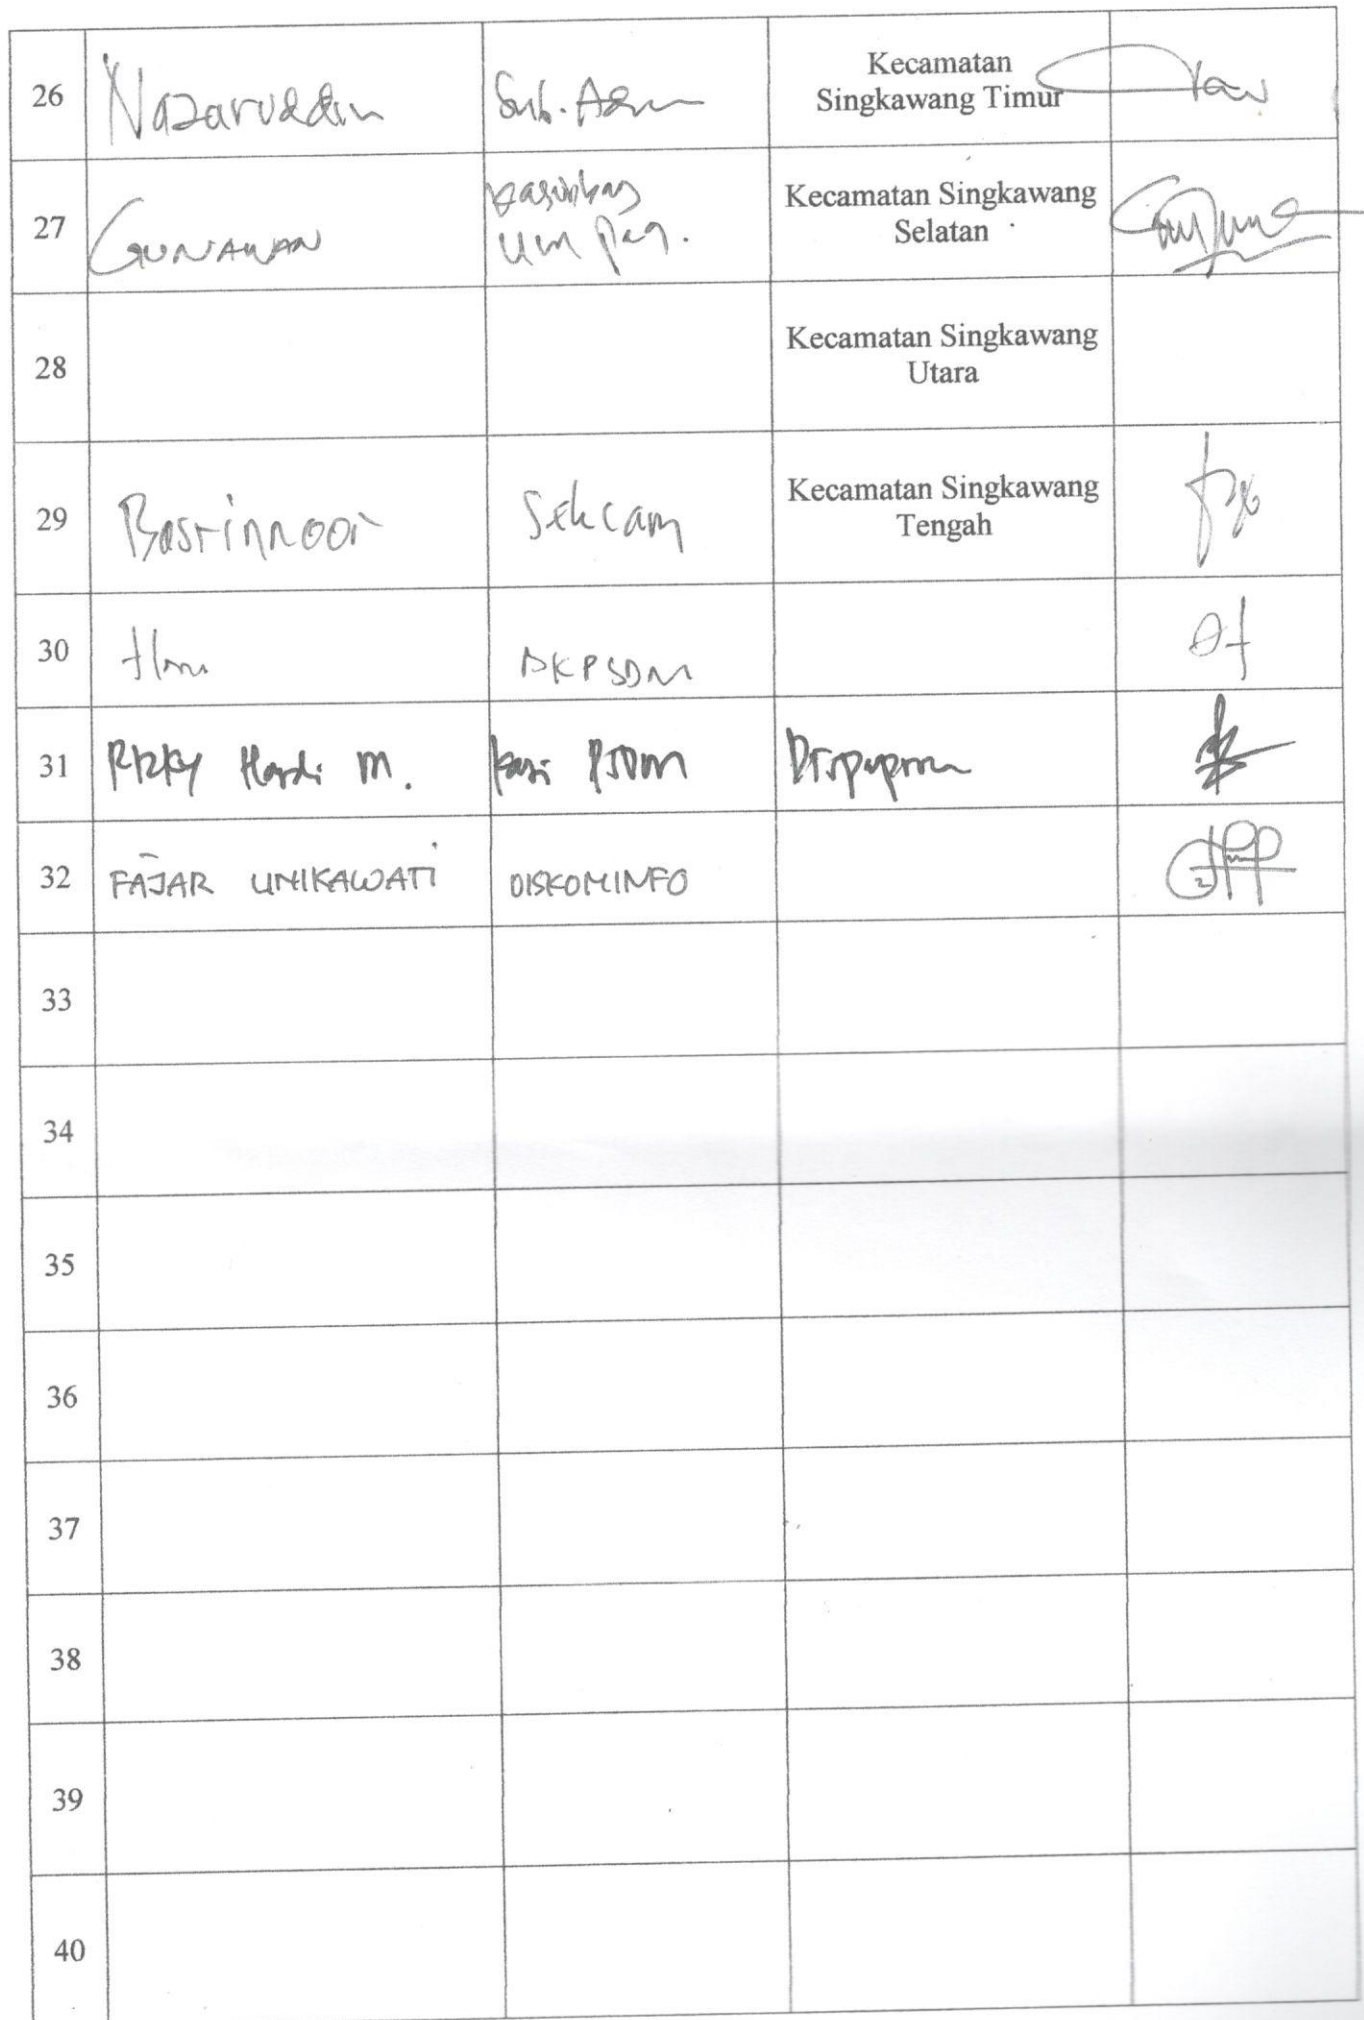 26 Nazaruddin Sub. Adm Kecamatan
Singkawang Timur
27 GUNAWAN Kasubbag
um peg. Kecamatan Singkawang
Selatan
28 Kecamatan Singkawang
Utara
29 Basrinnoor Sekcam Kecamatan Singkawang
Tengah
30 BKPSDM
31 Rizky Hardi M. kasi PSDM
32 FAJAR UNIKAWATI DISKOMINFO
33
34
35
36
37
38
39
40